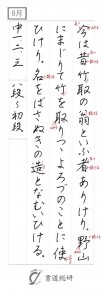 8月
今は昔竹取の翁といふ者ありけり。野山
にまじりて竹を取りつつよろづのことに使
ひけり。名をばさぬきの造となむいひける。
中一・二・三　八段〜初段
書道総研